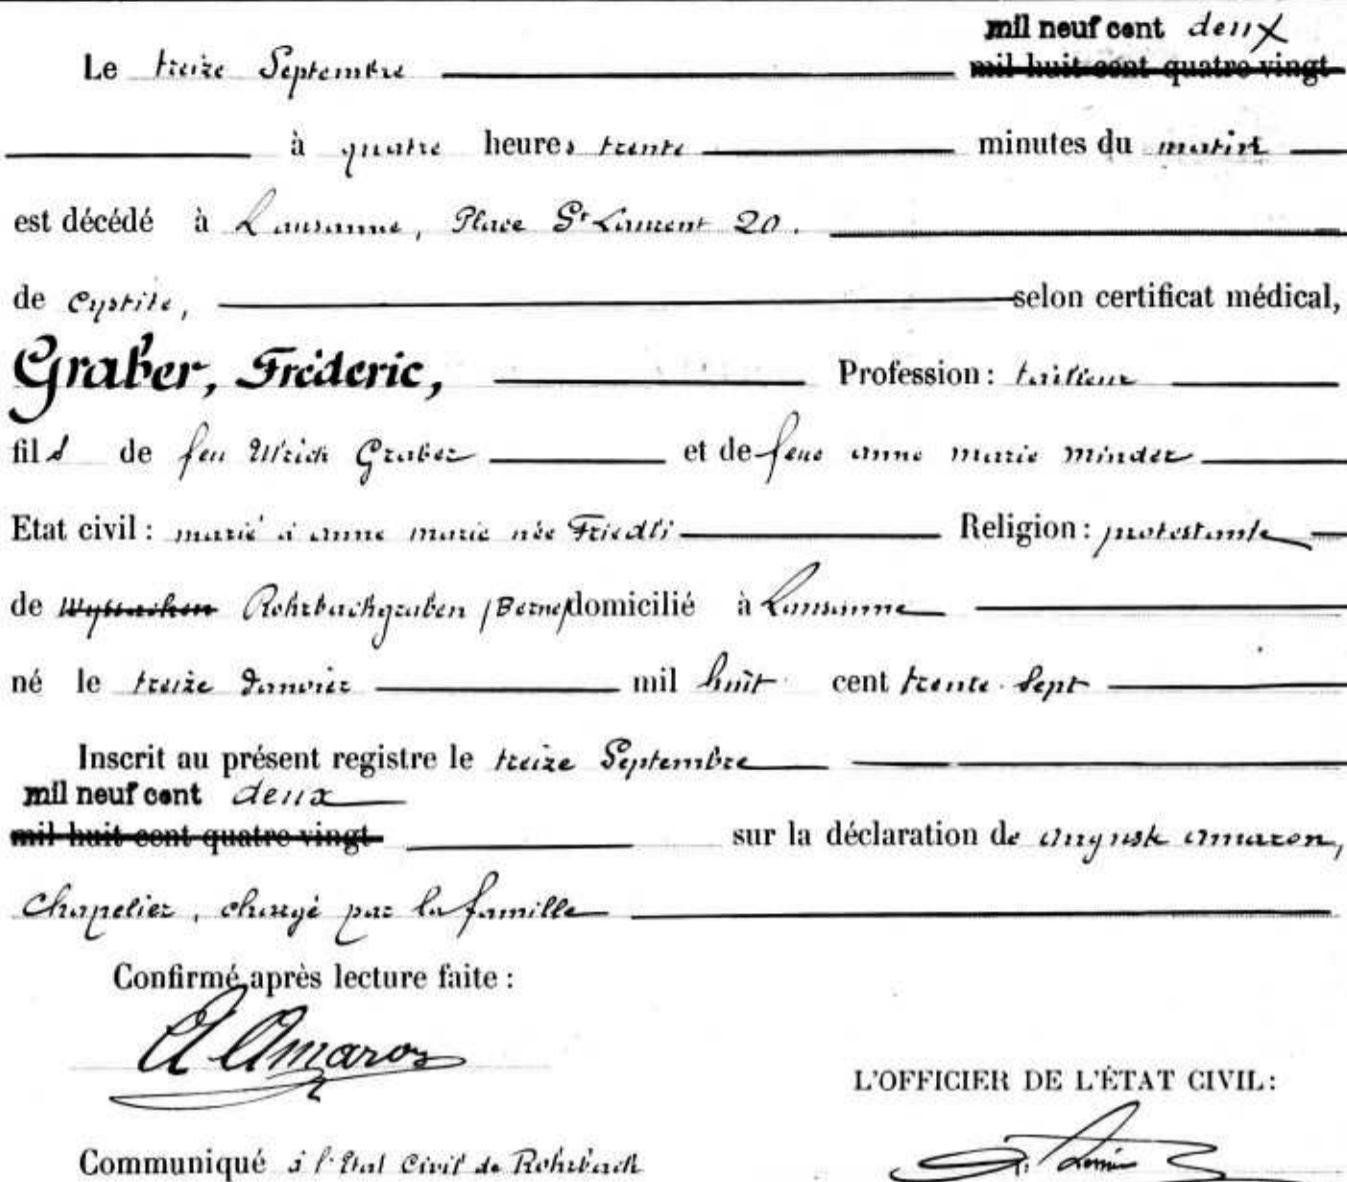 mil neuf cent deux
Le treize Septembre mil huit cent quatre vingt
à quatre heures trente minutes du matin
est décédé à Lausanne, Place St Laurent 20.
de cystite, selon certificat médical,
Graber, Fréderic, Profession : tailleur
fils de feu Ulrich Graber et de feue anne marie Minder
Etat civil : marié à anne marie née Friedli Religion : protestante
de Wyssachen Rohrbachgraben (Berne) domicilié à Lausanne
né le treize Janvier mil huit cent trente-sept
Inscrit au présent registre le treize Septembre
mil neuf cent deux
mil huit cent quatre vingt sur la déclaration de august amaron,
Chapelier, chargé par la famille
Confirmé après lecture faite :
A Amaron
L'OFFICIER DE L'ÉTAT CIVIL :
Communiqué à l'Etat Civil de Rohrbach